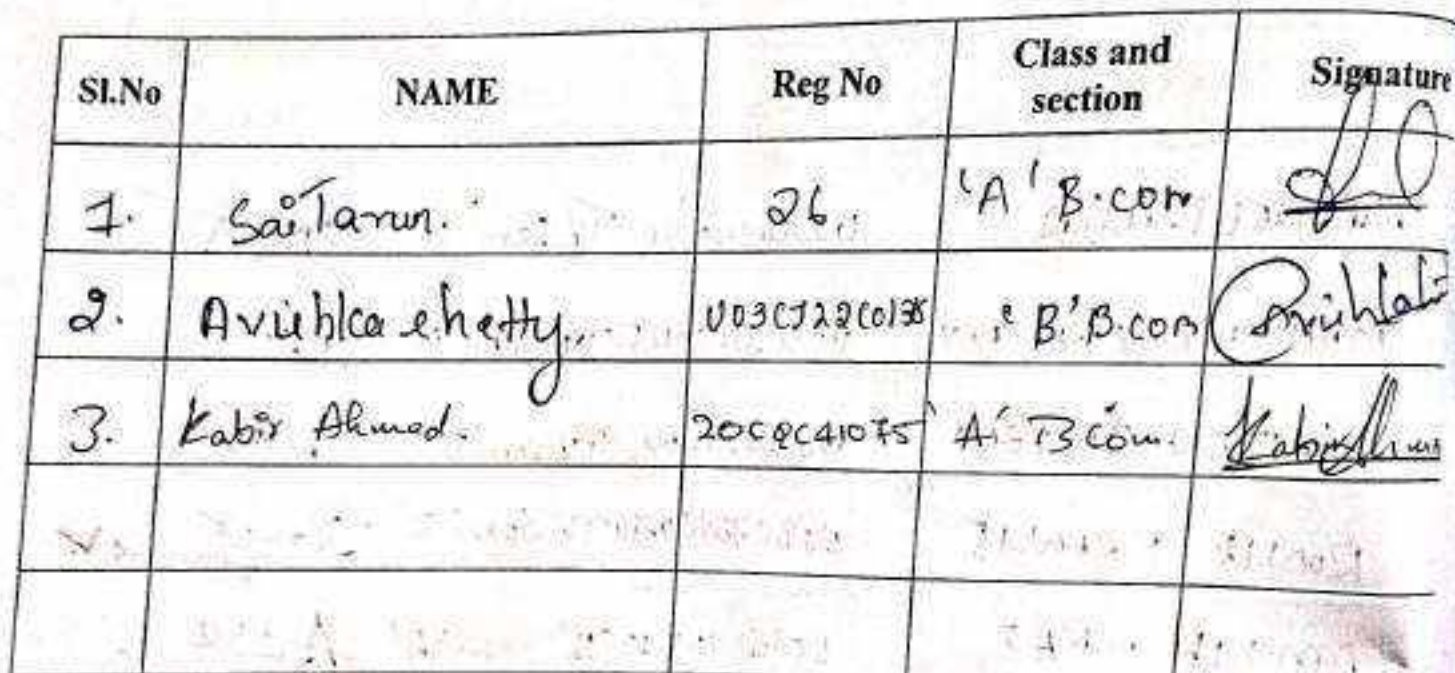 Sl.No NAME Reg No Class and section Signature
1. Sai Tarun. 26. 'A' B.com
2. Avishka shetty. U03CJ22C0138 'B' B.com
3. Kabir Ahmed. 20CQC41075 'A' B com. Kabir Ahmed